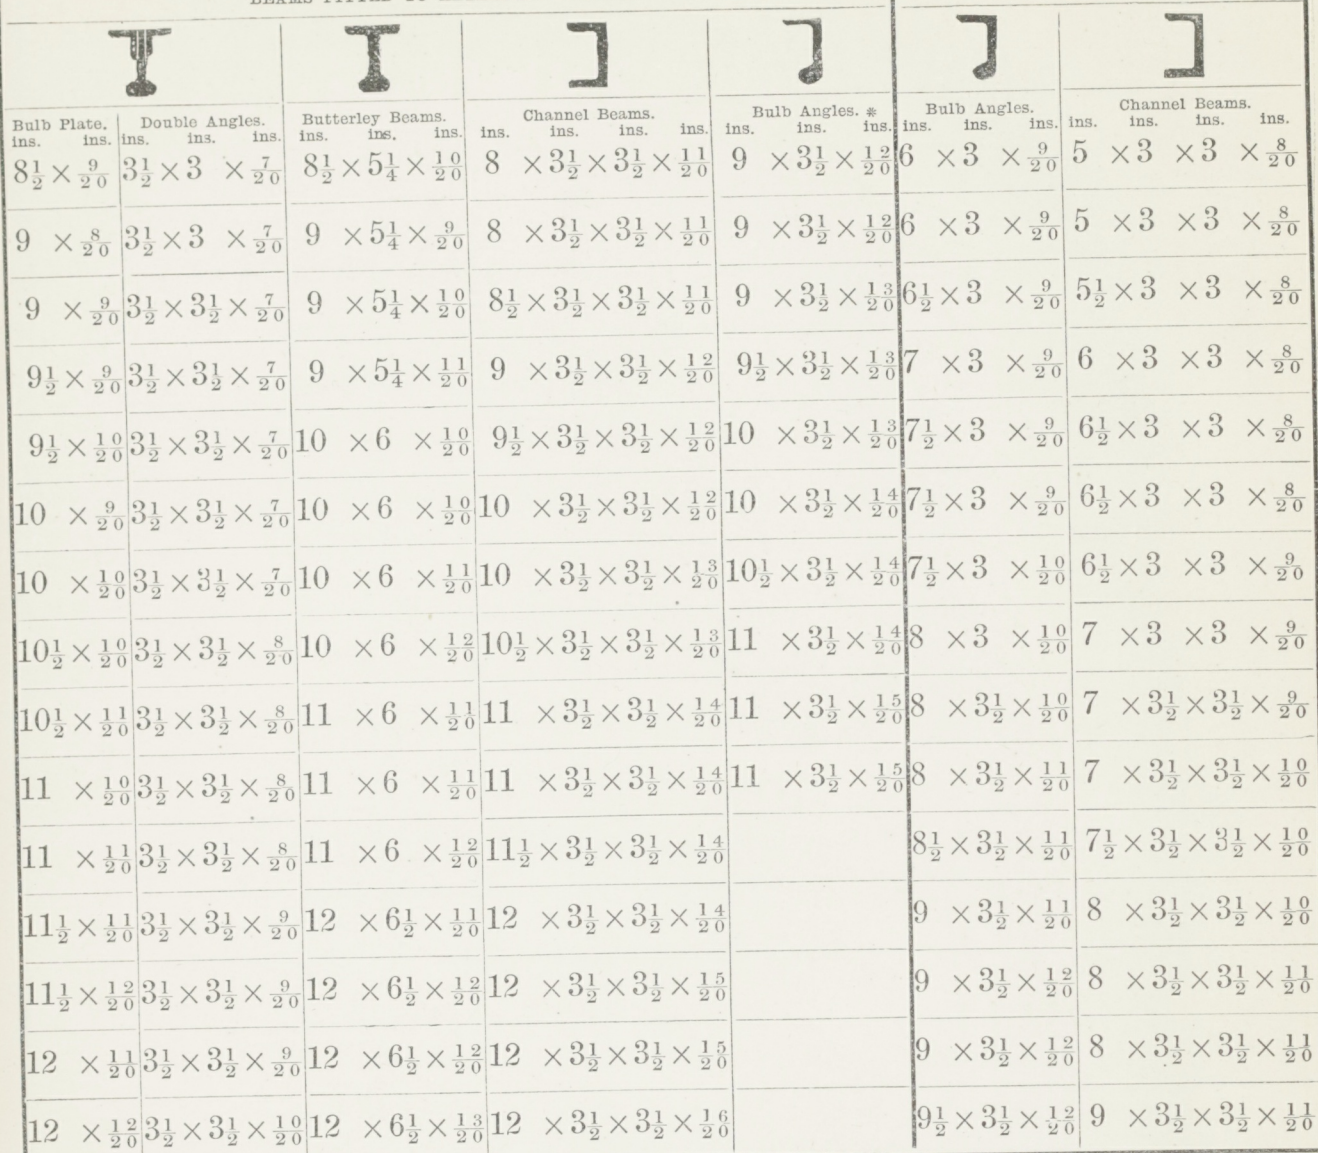 Bulb Plate. Double Angles. Butterley Beams. Channel Beams. Bulb Angles. * Bulb Angles. Channel Beams.
ins. ins. ins. ins. ins. ins. ins. ins. ins. ins. ins. ins. ins. ins. ins. ins. ins. ins. ins. ins. ins. ins.
8½ × 9/20 3½ × 3 × 7/20 8½ × 5¼ × 10/20 8 × 3½ × 3½ × 11/20 9 × 3½ × 12/20 6 × 3 × 9/20 5 × 3 × 3 × 8/20
9 × 8/20 3½ × 3 × 7/20 9 × 5¼ × 9/20 8 × 3½ × 3½ × 11/20 9 × 3½ × 12/20 6 × 3 × 9/20 5 × 3 × 3 × 8/20
9 × 9/20 3½ × 3½ × 7/20 9 × 5¼ × 10/20 8½ × 3½ × 3½ × 11/20 9 × 3½ × 13/20 6½ × 3 × 9/20 5½ × 3 × 3 × 8/20
9½ × 9/20 3½ × 3½ × 7/20 9 × 5¼ × 11/20 9 × 3½ × 3½ × 12/20 9½ × 3½ × 13/20 7 × 3 × 9/20 6 × 3 × 3 × 8/20
9½ × 10/20 3½ × 3½ × 7/20 10 × 6 × 10/20 9½ × 3½ × 3½ × 12/20 10 × 3½ × 13/20 7½ × 3 × 9/20 6½ × 3 × 3 × 8/20
10 × 9/20 3½ × 3½ × 7/20 10 × 6 × 10/20 10 × 3½ × 3½ × 12/20 10 × 3½ × 14/20 7½ × 3 × 9/20 6½ × 3 × 3 × 8/20
10 × 10/20 3½ × 3½ × 7/20 10 × 6 × 11/20 10 × 3½ × 3½ × 13/20 10½ × 3½ × 14/20 7½ × 3 × 10/20 6½ × 3 × 3 × 9/20
10½ × 10/20 3½ × 3½ × 8/20 10 × 6 × 12/20 10½ × 3½ × 3½ × 13/20 11 × 3½ × 14/20 8 × 3 × 10/20 7 × 3 × 3 × 9/20
10½ × 11/20 3½ × 3½ × 8/20 11 × 6 × 11/20 11 × 3½ × 3½ × 14/20 11 × 3½ × 15/20 8 × 3½ × 10/20 7 × 3½ × 3½ × 9/20
11 × 10/20 3½ × 3½ × 8/20 11 × 6 × 11/20 11 × 3½ × 3½ × 14/20 11 × 3½ × 15/20 8 × 3½ × 11/20 7 × 3½ × 3½ × 10/20
11 × 11/20 3½ × 3½ × 8/20 11 × 6 × 12/20 11½ × 3½ × 3½ × 14/20 8½ × 3½ × 11/20 7½ × 3½ × 3½ × 10/20
11½ × 11/20 3½ × 3½ × 9/20 12 × 6½ × 11/20 12 × 3½ × 3½ × 14/20 9 × 3½ × 11/20 8 × 3½ × 3½ × 10/20
11½ × 12/20 3½ × 3½ × 9/20 12 × 6½ × 12/20 12 × 3½ × 3½ × 15/20 9 × 3½ × 12/20 8 × 3½ × 3½ × 11/20
12 × 11/20 3½ × 3½ × 9/20 12 × 6½ × 12/20 12 × 3½ × 3½ × 15/20 9 × 3½ × 12/20 8 × 3½ × 3½ × 11/20
12 × 12/20 3½ × 3½ × 10/20 12 × 6½ × 13/20 12 × 3½ × 3½ × 16/20 9½ × 3½ × 12/20 9 × 3½ × 3½ × 11/20